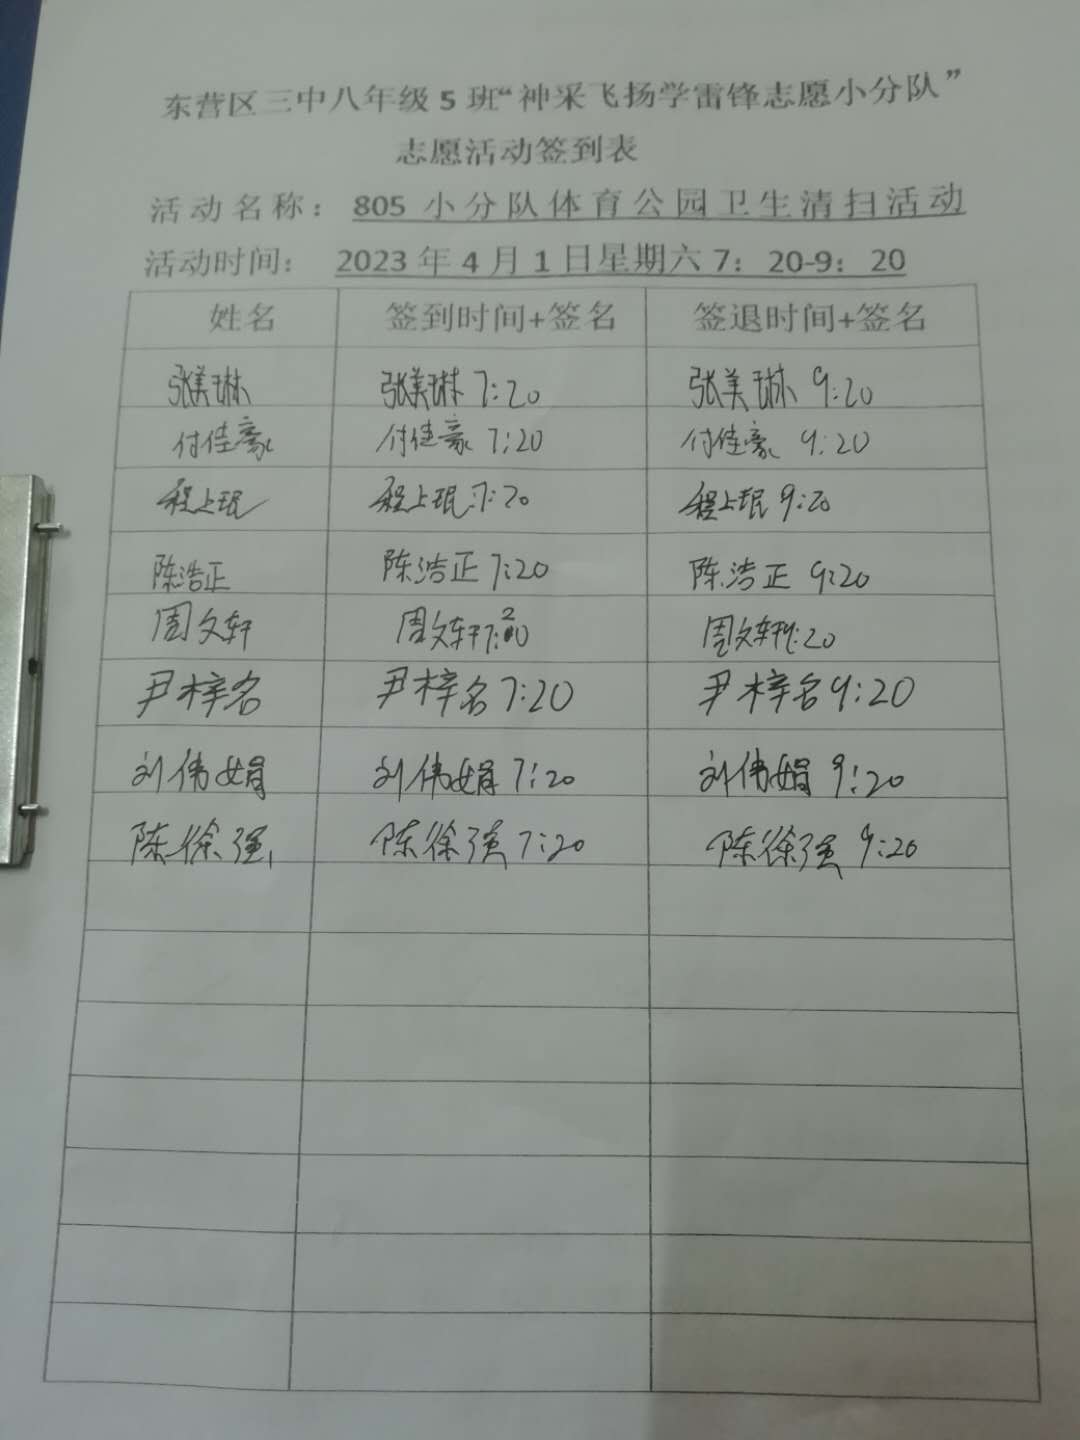 东营区三中八年级5班“神采飞扬学雷锋志愿小分队”
志愿活动签到表
活动名称：805小分队体育公园卫生清扫活动
活动时间：2023年4月1日星期六7：20-9：20
姓名 签到时间+签名 签退时间+签名
张美琳 张美琳 7:20 张美琳 9:20
付佳豪 付佳豪 7:20 付佳豪 9:20
程上珉 程上珉 7:20 程上珉 9:20
陈浩正 陈浩正 7:20 陈浩正 9:20
周文轩 周文轩 7:20 周文轩 9:20
尹梓名 尹梓名 7:20 尹梓名 9:20
刘伟娟 刘伟娟 7:20 刘伟娟 9:20
陈徐强 陈徐强 7:20 陈徐强 9:20